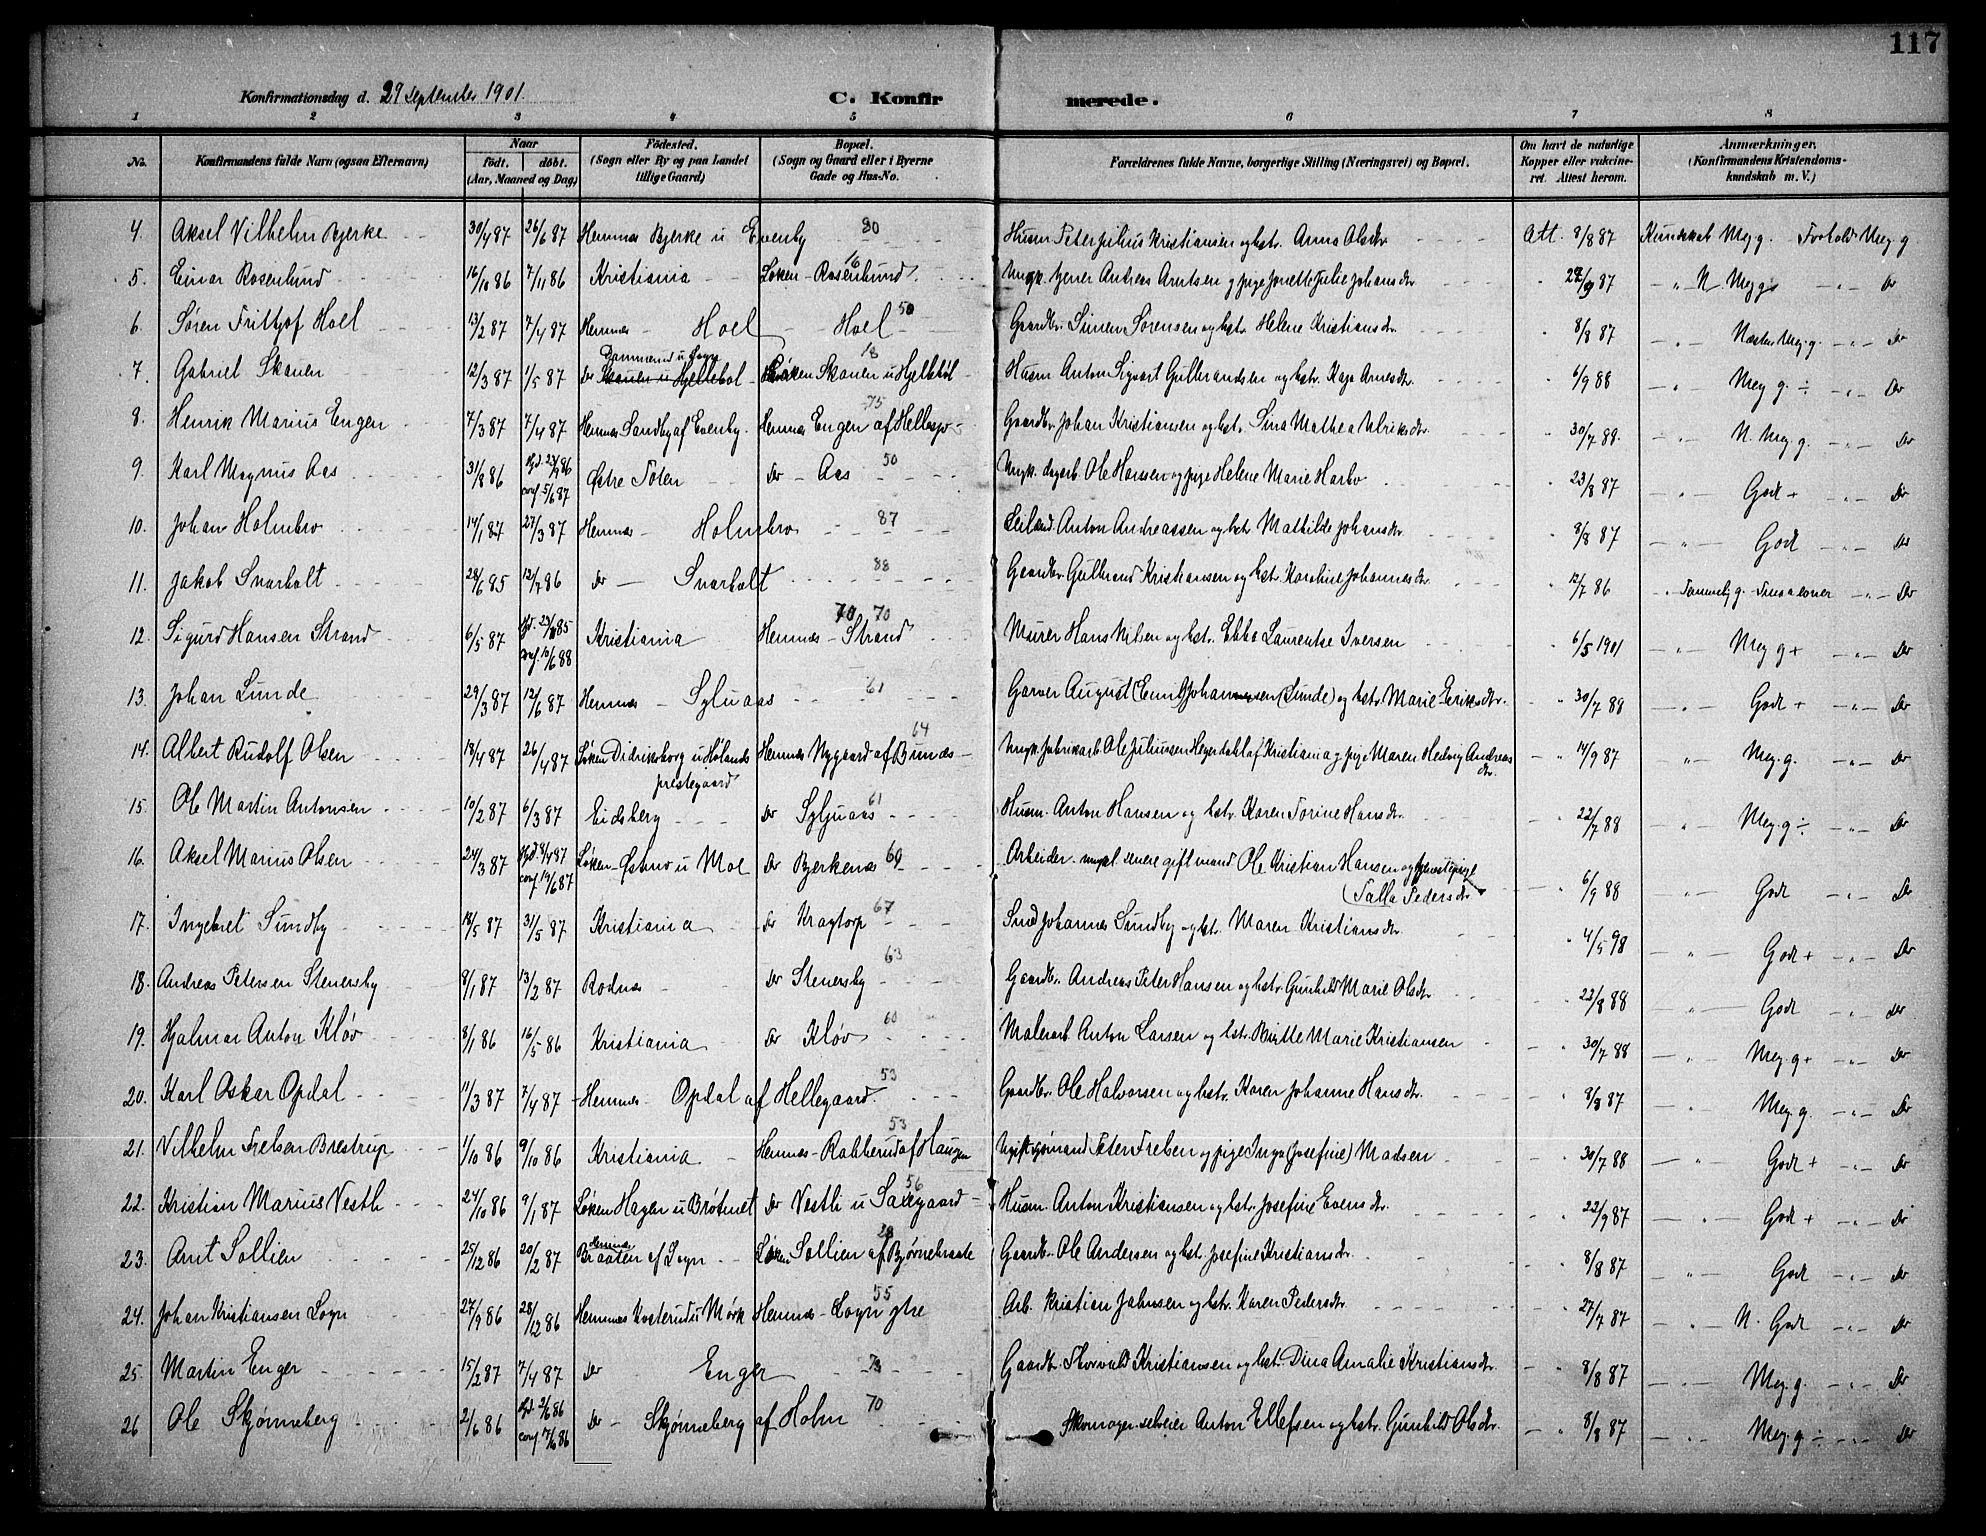 117
Konfirmationsdag d. 29 September 1901. C. Konfirmerede.
1 2 3 4 5 6 7 8
No. Konfirmandens fulde Navn (ogsaa Efternavn) Naar født. døbt. (Aar, Maaned og Dag) Fødested. (Sogn eller By og paa Landet tillige Gaard) Bopæl. (Sogn og Gaard eller i Byerne Gade og Hus-No. Forældrenes fulde Navne, borgerlige Stilling (Næringsvei) og Bopæl. Om havt de naturlige Kopper eller vakcineret. Attest herom. Anmærkninger. (Konfirmandens Kristendomskundskab m. V.)
4. Aksel Vilhelm Bjerke 30/4 87 26/6 87 Hemnæs Bjerke u Evenby 80 Husm Peter Julius Kristiansen og hstr. Anna Olsdtr Att. 8/8 87 Kundskab Meg g. Forhold Meg g
5. Einar Rosenlund 16/10 86 7/11 86 Kristiania Løken - Rosenlund 16 Ungk. tjener Andreas Arntsen og pige Jonette Julie Johansdtr 27/9 87 N Meg g Do
6. Søren Frithjof Hoel 13/2 87 7/4 87 Hemnæs - Hoel - Hoel 50 Gaardbr. Simen Sørensen og hstr. Helene Kristiansdtr. 8/8 87 Næsten Meg. g. Do
7. Gabriel Skauen 12/3 87 1/5 87 Do Skauen u Hjellebøl Løken Skauen u Hjellebøl 18 Husm Anton Sigvart Gulbrandsen og hstr. Kaja Arnesdtr. 6/9 88 Meg g. ÷ Do
8. Henrik Marius Engen 7/3 87 7/4 87 Hemnæs Sandby af Evenby. Hemnæs Engen af Hellesjø 75 Gaardbr. Johan Kristiansen og hstr. Sina Mathea Ulriksdtr. 30/7 88. N. Meg. g. Do
9. Karl Magnus Aas 31/8 86 conf 5/6 87 Østre Toten Do - Aas 50 Ungk. dagarb. Ole Hansen og pige Helene Marie Harbo 23/8 87 Godt + Do
10. Johan Holmbro 14/1 87 27/3 87 Hemnæs Holmbro 87 Leilænd. Anton Andreassen og hstr. Mathilde Johansdtr 8/8 87 Godt Do
11. Jakob Svarholt 28/6 85 12/7 86 Do - Svarholt 88 Gaardbr. Gulbrand Kristiansen og hstr. Karoline Johannesdtr. 12/7 86 Temmelig g. Do
12. Sigurd Hansen Strand 6/5 87 conf. 10/6 88 Kristiania Hemnæs - Strand 70 Murer Hans Nilsen og hstr. Laurentse Iversen 6/5 1901 Meg g + Do
13. Johan Lunde 29/3 87 12/6 87 Hemnæs - Syljuaas 61 Garver August (Emil) Johannessen (Lunde) og hstr. Marie Eriksdtr. 30/7 88 Godt + Do
14. Albert Rudolf Olsen 18/4 87 26/4 87 Løken Didriksborg u Hølands prestegaard Hemnæs Nygaard af Bunæs 64 Ungk. fabrikarb. Ole Juliussen Hegerdahl af Kristiania og pige Maren Hedvig Andreasdtr. 14/9 87 Meg. g. Do
15. Ole Martin Antonsen 10/2 87 6/3 87 Eidsberg Do Syljuaas 61 Husm. Anton Hansen og hstr. Karen Torine Hansdtr. 22/7 88 Meg. g ÷ Do
16. Aksel Marius Olsen 24/3 87 conf 19/6 87 Løken - u Moe Do Bjerkenæs 60 Arbeider. ungk. senere gift mand Ole Kristian Hansen og tjenestepige (Talla Pedersdtr 6/9 88 Godt Do
17. Ingebret Sundby 18/5 87 31/5 87 Kristiania Do Kragtorp 67 Smed Johannes Sundby og hstr. Maren Kristiansdtr. 4/5 98 Godt + Do
18. Andreas Petersen Stenersby 8/1 87 13/2 87 Rødnæs Do Stenersby 63 Gaardbr. Andreas Peter Hansen og hstr. Gunhild Marie Olsdtr 22/8 88 Godt Do
19. Hjalmar Anton Kløv 8/1 86 16/5 86 Kristiania Do Kløv 60 Malerarb Anton Larsen og hstr. Birgitte Marie Kristiansen 30/7 88 Meg. g + Do
20. Karl Oskar Opdal 11/3 87 7/4 87 Hemnæs - Opdal af Hellegaard. 53 Gaardbr. Ole Halvorsen og hstr. Karen Johanne Hansdtr. 8/8 87 Meg. g. Do
21. Vilhelm Treben Brestrup 1/10 86 9/10 86 Kristiania Hemnæs - Rakkerud af Haugen 53 Ugift sjømand Peter Treben og pige Inga (Josefine) Madsen 30/7 88 Godt + Do
22. Kristian Marius Vestli 24/10 86 9/1 87 Løken Hagen u Brøtnet Do Vestli u Savgaard 56 Husm. Anton Kristiansen og hstr. Josefine Evensdtr. 22/9 87 Godt + Do
23. Arnt Sollien 25/12 86 20/2 87 Hemnæs Braaten af Sogn Løken Sollien af Bjørnebraate Gaardbr. Ole Andersen og hstr. Josefine Kristiansdtr. 8/8 87 Godt Do
24. Johan Kristiansen Sogn 27/9 86 28/12 86 Hemnæs Kosterud u Mørk Hemnæs - Sogn ytre 55 Arb. Kristian Jahnsen og hstr. Karen Pedersdtr 27/7 87 N. Godt Do
25. Martin Enger 15/2 87 7/4 87 Do Enger 73 Gaardbr. Thorvald Kristiansen og hstr. Dina Amalie Kristiansdtr. 8/8 87 Meg. g. Do
26 Ole Skjønneberg 2/6 86 conf 7/6 86 Do - Skjønneberg af Holm 70 Skomager selveier Anton Ellefsen og hstr. Gunhild Olsdtr. 8/8 87 Meg. g ÷ Do